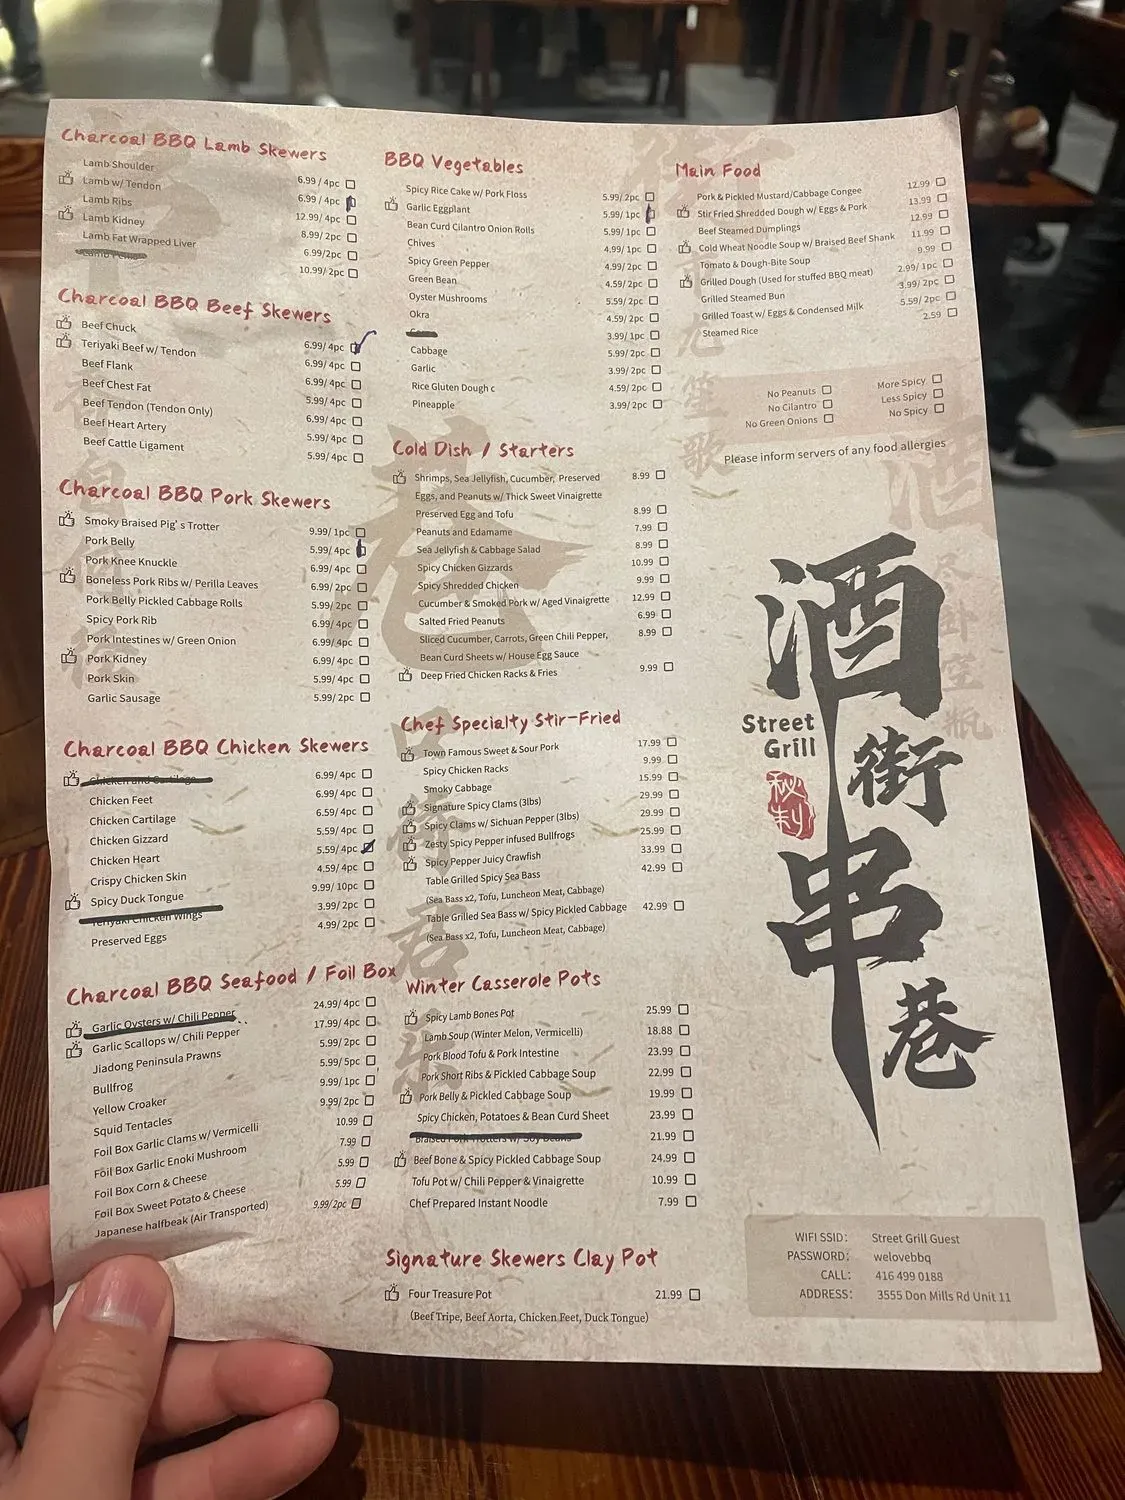 Charcoal BBQ Lamb Skewers
Lamb Shoulder 6.99 / 4pc
Lamb w/ Tendon 6.99 / 4pc
Lamb Ribs 12.99/ 4pc
Lamb Kidney 8.99/ 2pc
Lamb Fat Wrapped Liver 6.99/2pc
10.99/ 2pc
Charcoal BBQ Beef Skewers
Beef Chuck 6.99/ 4pc
Teriyaki Beef w/ Tendon 6.99/ 4pc
Beef Flank 6.99/ 4pc
Beef Chest Fat 5.99/ 4pc
Beef Tendon (Tendon Only) 6.99/ 4pc
Beef Heart Artery 5.99/ 4pc
Beef Cattle Ligament 5.99/ 4pc
Charcoal BBQ Pork Skewers
Smoky Braised Pig's Trotter 9.99/ 1pc
Pork Belly 5.99/ 4pc
Pork Knee Knuckle 6.99/ 4pc
Boneless Pork Ribs w/ Perilla Leaves 6.99/ 2pc
Pork Belly Pickled Cabbage Rolls 5.99/ 2pc
Spicy Pork Rib 6.99/ 4pc
Pork Intestines w/ Green Onion 6.99/ 4pc
Pork Kidney 6.99/ 4pc
Pork Skin 5.99/ 4pc
Garlic Sausage 5.99/ 2pc
Charcoal BBQ Chicken Skewers
Chicken and Cartilage 6.99/ 4pc
Chicken Feet 6.99/ 4pc
Chicken Cartilage 6.59/ 4pc
Chicken Gizzard 5.59/ 4pc
Chicken Heart 5.59/ 4pc
Crispy Chicken Skin 4.59/ 4pc
Spicy Duck Tongue 9.99/ 10pc
Teriyaki Chicken Wings 3.99/ 2pc
Preserved Eggs 4.99/ 2pc
Charcoal BBQ Seafood / Foil Box
Garlic Oysters w/ Chili Pepper 24.99/ 4pc
Garlic Scallops w/ Chili Pepper 17.99/ 4pc
Jiadong Peninsula Prawns 5.99/ 2pc
Bullfrog 5.99/ 5pc
Yellow Croaker 9.99/ 1pc
Squid Tentacles 9.99/ 2pc
Foil Box Garlic Clams w/ Vermicelli 10.99
Foil Box Garlic Enoki Mushroom 7.99
Foil Box Corn & Cheese 5.99
Foil Box Sweet Potato & Cheese 5.99
Japanese halfbeak (Air Transported) 9.99/2pc
BBQ Vegetables
Spicy Rice Cake w/ Pork Floss 5.99/ 2pc
Garlic Eggplant 5.99/ 1pc
Bean Curd Cilantro Onion Rolls 5.99/ 1pc
Chives 4.99/ 1pc
Spicy Green Pepper 4.99/ 2pc
Green Bean 4.59/ 2pc
Oyster Mushrooms 5.59/ 2pc
Okra 4.59/ 2pc
3.99/ 1pc
Cabbage 5.99/ 2pc
Garlic 3.99/ 2pc
Rice Gluten Dough c 4.59/ 2pc
Pineapple 3.99/ 2pc
Cold Dish / Starters
Shrimps, Sea Jellyfish, Cucumber, Preserved 8.99
Eggs, and Peanuts w/ Thick Sweet Vinaigrette
Preserved Egg and Tofu 8.99
Peanuts and Edamame 7.99
Sea Jellyfish & Cabbage Salad 8.99
Spicy Chicken Gizzards 10.99
Spicy Shredded Chicken 9.99
Cucumber & Smoked Pork w/ Aged Vinaigrette 12.99
Salted Fried Peanuts 6.99
Sliced Cucumber, Carrots, Green Chili Pepper, 8.99
Bean Curd Sheets w/ House Egg Sauce
Deep Fried Chicken Racks & Fries 9.99
Chef Specialty Stir-Fried
Town Famous Sweet & Sour Pork 17.99
Spicy Chicken Racks 9.99
Smoky Cabbage 15.99
Signature Spicy Clams (3lbs) 29.99
Spicy Clams w/ Sichuan Pepper (3lbs) 29.99
Zesty Spicy Pepper infused Bullfrogs 25.99
Spicy Pepper Juicy Crawfish 33.99
Table Grilled Spicy Sea Bass 42.99
(Sea Bass x2, Tofu, Luncheon Meat, Cabbage)
Table Grilled Sea Bass w/ Spicy Pickled Cabbage 42.99
(Sea Bass x2, Tofu, Luncheon Meat, Cabbage)
Winter Casserole Pots
Spicy Lamb Bones Pot 25.99
Lamb Soup (Winter Melon, Vermicelli) 18.88
Pork Blood Tofu & Pork Intestine 23.99
Pork Short Ribs & Pickled Cabbage Soup 22.99
Pork Belly & Pickled Cabbage Soup 19.99
Spicy Chicken, Potatoes & Bean Curd Sheet 23.99
Braised Pork Trotters w/ Soy Beans 21.99
Beef Bone & Spicy Pickled Cabbage Soup 24.99
Tofu Pot w/ Chili Pepper & Vinaigrette 10.99
Chef Prepared Instant Noodle 7.99
Signature Skewers Clay Pot
Four Treasure Pot 21.99
(Beef Tripe, Beef Aorta, Chicken Feet, Duck Tongue)
Main Food
Pork & Pickled Mustard/Cabbage Congee 12.99
Stir Fried Shredded Dough w/ Eggs & Pork 13.99
Beef Steamed Dumplings 12.99
Cold Wheat Noodle Soup w/ Braised Beef Shank 11.99
Tomato & Dough-Bite Soup 9.99
Grilled Dough (Used for stuffed BBQ meat) 2.99/ 1pc
Grilled Steamed Bun 3.99/ 2pc
Grilled Toast w/ Eggs & Condensed Milk 5.59/ 2pc
Steamed Rice 2.59
No Peanuts More Spicy
No Cilantro Less Spicy
No Green Onions No Spicy
Please inform servers of any food allergies
酒
街
串
巷
Street
Grill
秘
制
WIFI SSID: Street Grill Guest
PASSWORD: welovebbq
CALL: 416 499 0188
ADDRESS: 3555 Don Mills Rd Unit 11